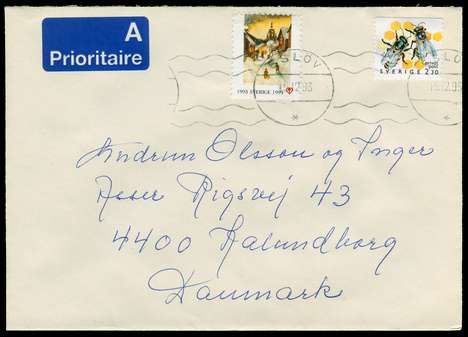 A
Prioritaire
1993 SVERIGE 1994
SVERIGE 2.30
SLÖV
15.12.93
Gudrun Olsson og Inger
Asser Rigsvej 43
4400 Kalundborg
Danmark